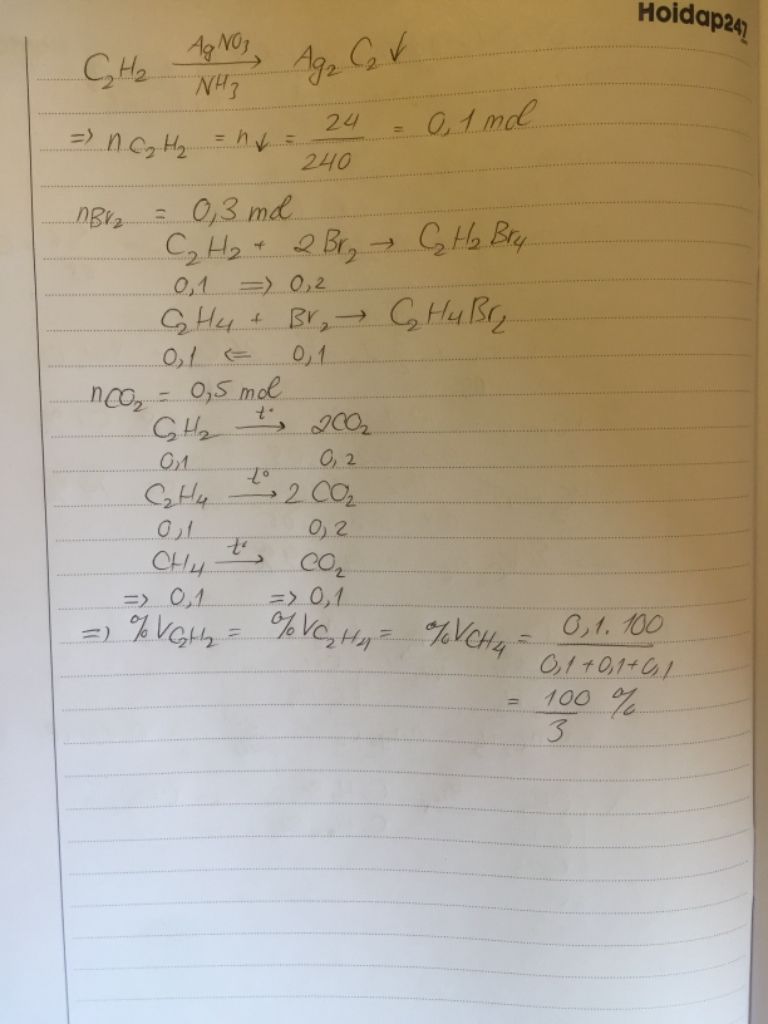 Hoidap247
C₂H₂ AgNO₃/NH₃ → Ag₂C₂↓
=> nC₂H₂ = n↓ = 24/240 = 0,1 mol
nBr₂ = 0,3 mol
C₂H₂ + 2Br₂ → C₂H₂Br₄
0,1 => 0,2
C₂H₄ + Br₂ → C₂H₄Br₂
0,1 <= 0,1
nCO₂ = 0,5 mol
C₂H₂ t° → 2CO₂
0,1 0,2
C₂H₄ t° → 2CO₂
0,1 0,2
CH₄ t° → CO₂
=> 0,1 => 0,1
=> %VC₂H₂ = %VC₂H₄ = %VCH₄ = 0,1.100/0,1+0,1+0,1
= 100/3 %